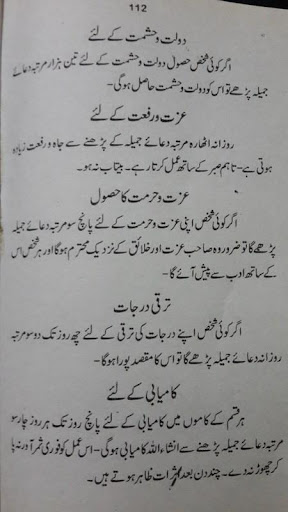 112
دولت و حشمت کے لئے
اگر کوئی شخص حصول دولت و حشمت کے لئے تین ہزار مرتبہ دعائے
جمیلہ پڑھے تو اس کو دولت و حشمت حاصل ہوگی۔
عزت و رفعت کے لئے
روزانہ اٹھارہ مرتبہ دعائے جمیلہ کے پڑھنے سے جاہ و رفعت زیادہ
ہوتی ہے۔ تاہم صبر کے ساتھ عمل کرتا رہے۔ بیتاب نہ ہو۔
عزت و حرمت کا حصول
اگر کوئی شخص اپنی عزت و حرمت کے لئے پانچ سو مرتبہ دعائے جمیلہ
پڑھے گا تو ضرور وہ صاحب عزت اور خلائق کے نزدیک محترم ہوگا اور ہر شخص اس
کے ساتھ ادب سے پیش آئے گا۔
ترقی درجات
اگر کوئی شخص اپنے درجات کی ترقی کے لئے چھ روز تک دو سو مرتبہ
روزانہ دعائے جمیلہ پڑھے گا تو اس کا مقصد پورا ہوگا۔
کامیابی کے لئے
ہر قسم کے کاموں میں کامیابی کے لئے پانچ روز تک ہر روز چار سو
مرتبہ دعائے جمیلہ پڑھنے سے انشاء اللہ کامیابی ہوگی۔ اس عمل کو فوری ثمر آور نہ پا
کر چھوڑ نہ دے۔ چند دن بعد اثرات ظاہر ہوتے ہیں۔